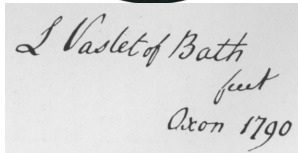 L Vaslet of Bath
fecit
Oxon 1790